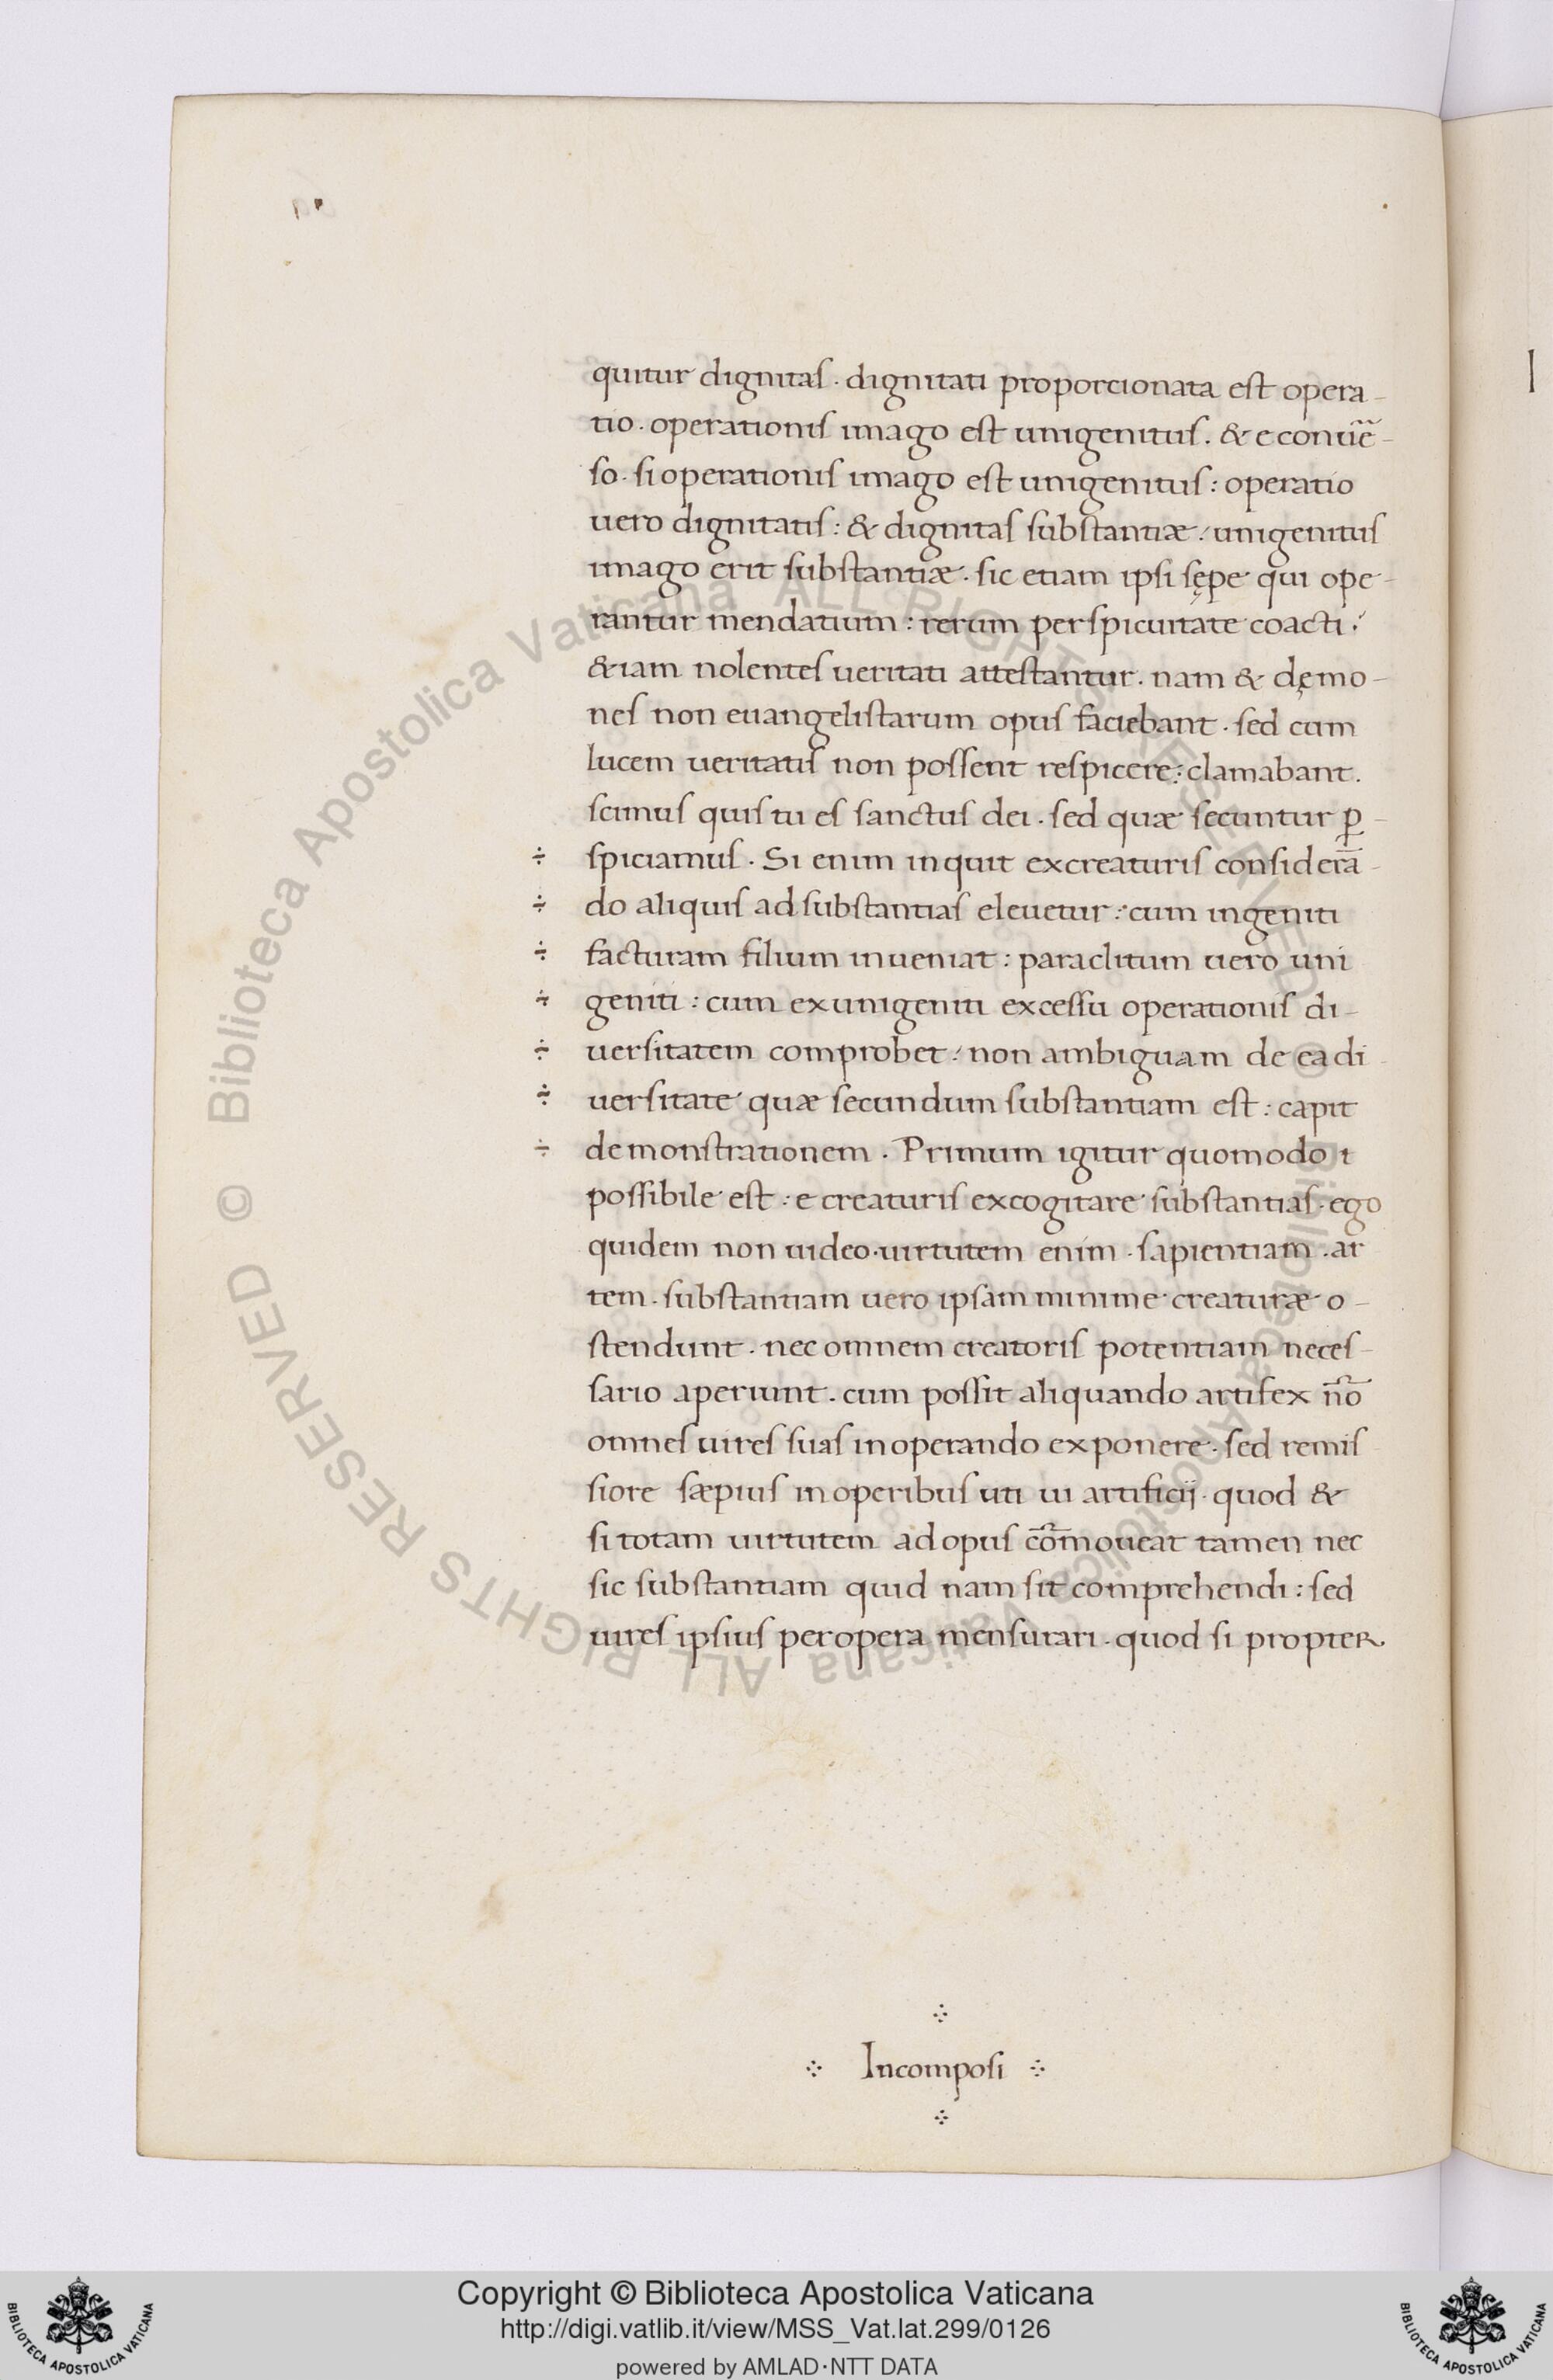 quitur dignitas. dignitati proporcionata est opera-
tio. operationis imago est unigenitus. & e conuẽ-
so. si operationis imago est unigenitus: operatio
uero dignitatis: & dignitas substantiæ: unigenitus
imago erit substantiæ. sic etiam ipsi sępe qui ope-
rantur mendatium: rerum perspicuitate coacti:
&iam nolentes ueritati attestantur. nam & dęmo-
nes non euangelistarum opus faciebant. sed cum
lucem ueritatis non possent respicere: clamabant.
scimus quis tu es sanctus dei. sed quæ secuntur ꝑ-
÷ spiciamus. Si enim inquit ex creaturis considerã-
÷ do aliquis ad substantias eleuetur: cum ingeniti
÷ facturam filium inueniat: paraclitum uero uni
÷ geniti: cum ex unigeniti excessu operationis di-
÷ uersitatem comprobet: non ambiguam de ea di-
÷ uersitate quæ secundum substantiam est: capit
÷ demonstrationem. Primum igitur quomodo i
possibile est: e creaturis excogitare substantias. ego
quidem non uideo. uirtutem enim. sapientiam. ar
tem. substantiam uero ipsam minime creaturæ o-
stendunt. nec omnem creatoris potentiam neces-
sario aperiunt. cum possit aliquando artifex nõ
omnes uires suas in operando exponere. sed remis
siore sæpius in operibus uti ui artificij. quod &
si totam uirtutem ad opus cõmoueat tamen nec
sic substantiam quid nam sit comprehendi: sed
uires ipsius per opera mensurari. quod si propter
Incomposi
© Biblioteca Apostolica Vaticana ALL RIGHTS RESERVED © Biblioteca Apostolica Vaticana ALL RIGHTS RESERVED
Copyright © Biblioteca Apostolica Vaticana
http://digi.vatlib.it/view/MSS_Vat.lat.299/0126
powered by AMLAD·NTT DATA
BIBLIOTECA APOSTOLICA VATICANA
BIBLIOTECA APOSTOLICA VATICANA